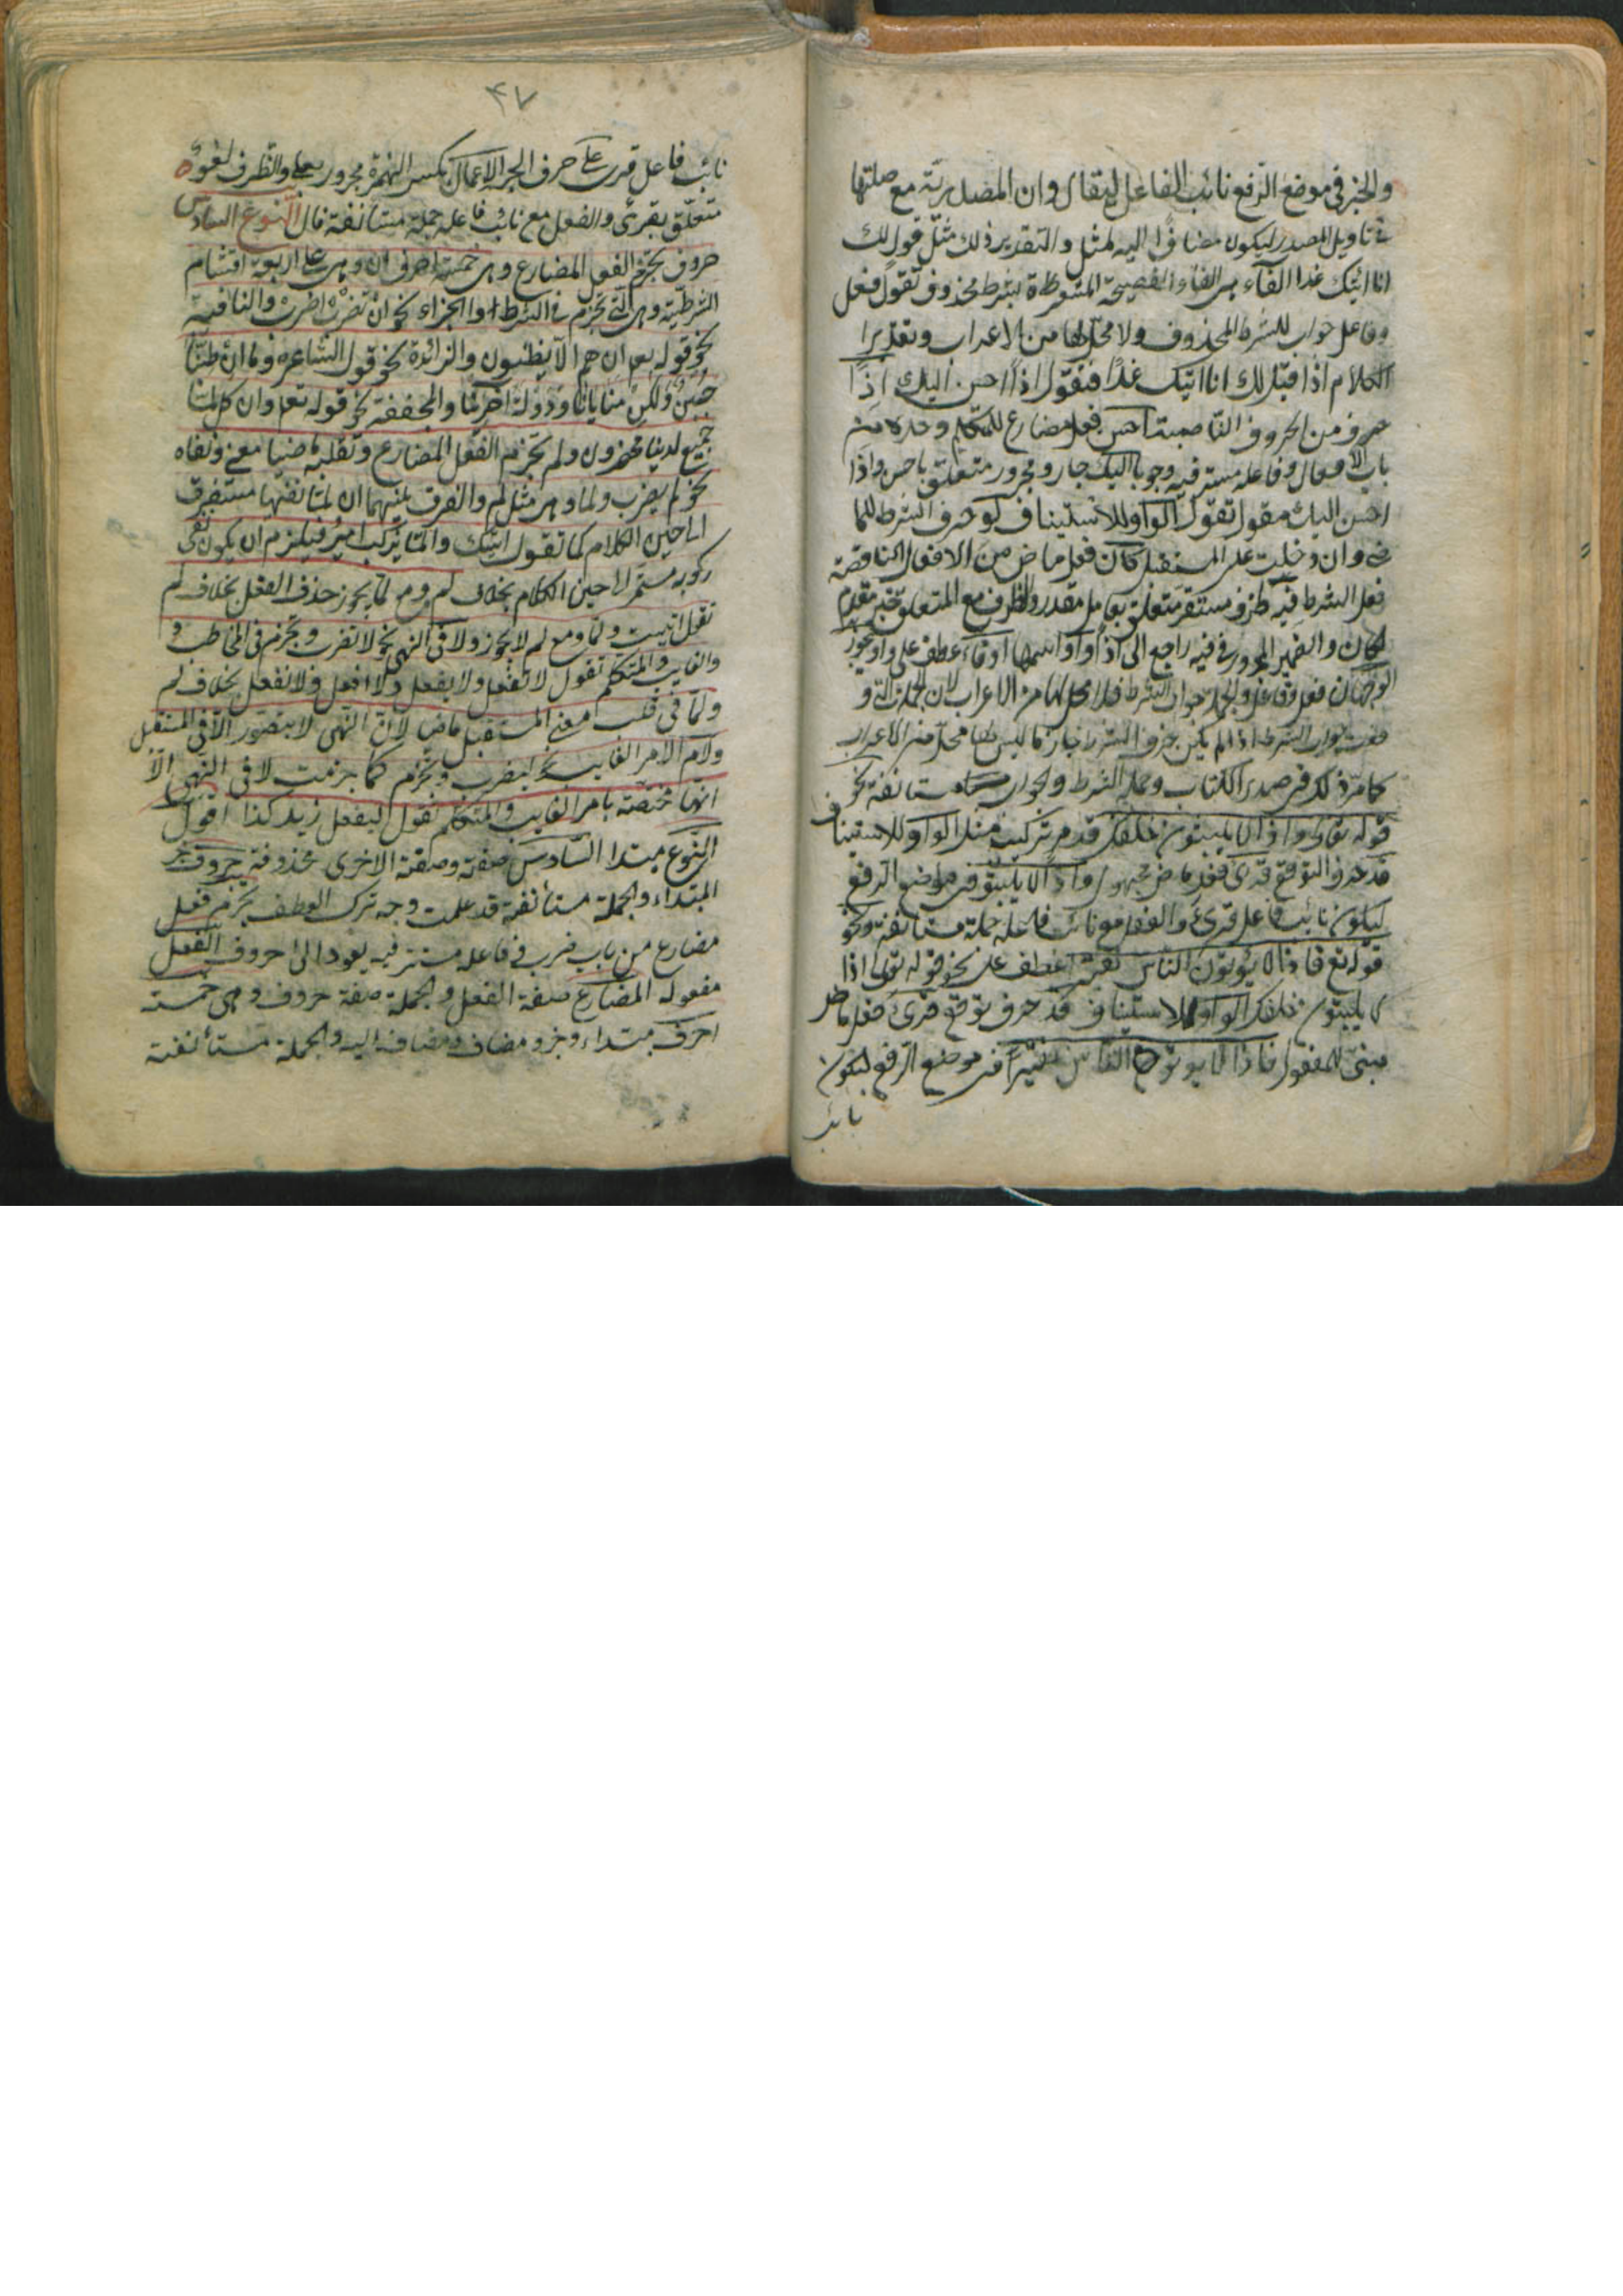 والخبر في موضع الرفع نائب الفاعل ليقال وان المصدرية مع صلتها
في تاويل المصدر ليكون مضافا اليه لمثل والتقدير ذلك مثل قولك
انا اتيك غدا الفاء هي الفاء الفصيحة بشرط محذوف تقول فعل
وفاعل جواب للشرط المحذوف ولا محل لها من الاعراب وتقدير
الكلام اذا قيل لك انا اتيك غدًا فتقول اذًا احسن اليك اذًا
حرف من الحروف الناصبة احسن فعل مضارع للمتكلم وحده من
باب الافعال وفاعله مستتر فيه وجوبا اليك جار ومجرور متعلق باحسن واذا
احسن اليك مقول تقول الواو للاستيناف لو حرف الشرط للما
ضي وان دخلت على المستقبل كان فعل ماض من الافعال الناقصة
فعل الشرط فيه ظرف مستقر متعلق بعامل مقدر والظرف مع المتعلق خبر مقدم
لكان والضمير المجرور في فيه راجع الى اذا واو اسمها او فاء عطف على واو يجوز
الوجهان فعل وفاعل والجملة جواب الشرط فلا محل لها من الاعراب لان الجملة التي و
قعت جواب الشرط اذا لم يكن حرف الشرط جازما ليس لها محل من الاعراب
كما مرّ ذلك في صدر الكتاب وجملة الشرط والجواب مستانفة نحو
قوله تعالى واذا لا يلبثون خلفك قد مر تركيب مثله الواو للاستيناف
قد حرف التوقع قرئ فعل ماض مجهول واذًا لا يلبثوا في موضع الرفع
ليكون نائب فاعل قرئ والفعل مع نائب فاعله جملة مستانفة ونحو
قوله تع فاذا لا يؤتون الناس نقيرا عطف على نحو قوله تعالى اذا
لا يلبثون خلفك الواو للاستيناف قد حرف توقع قرئ فعل ماض
مبني للمفعول فاذا لا يوتوا الناس نقيرًا في موضع الرفع ليكون
نائب
٤٧
نائب فاعل قرئ على حرف الجر الاعمال بكسر الهمزة مجرور بعلى والظرف لغو
متعلق بقرئ والفعل مع نائب فاعله جملة مستانفة قال النوع السادس
حروف تجزم الفعل المضارع وهي خمسة احرف ان وهي على اربعة اقسام
الشرطية وهي التي تجزم في الشرط والجزاء نحو ان تضرب اضرب والنافية
نحو قوله تع ان هم الا يظنون والزائدة نحو قول الشاعر وما ان طبنا
جبن ولكن منايانا ودولة اخرينا والمخففة نحو قوله تعا وان كل لما
جميع لدينا محضرون ولم تجزم الفعل المضارع وتقلبه ماضيا معنى ونفاه
نحو لم يضرب ولما وهي مثل لم والفرق بينهما ان لما نفيها مستغرق
الى حين الكلام كما تقول اتيتك ولما يركب امير فيلزم ان يكون نفى
ركوبه مستمرا لا حين الكلام بخلاف لم ومع لما يجوز حذف الفعل بخلاف لم
تقول اتيت ولما ومع لم لا يجوز ولا في النهي نحو لا تضرب وتجزم في المخاطب و
والغايب والمتكلم تقول لا تفعل ولا يفعل ولا افعل ولا نفعل بخلاف لم
ولما في قلب معنى المستقبل ماضيا لان النهي لا يتصور الا في المستقبل
ولام الامر الغايب نحو ليضرب وتجزم كما جزمت لا في النهي الا
انها مختصة بامر الغايب والمتكلم تقول ليفعل زيد كذا اقول
النوع مبتدا السادس صفته وصفته الاخرى محذوفة حروف خبر
المبتداء والجملة مستأنفة قد علمت وجه ترك العطف تجزم فعل
مضارع من باب ضرب فاعله مستتر فيه يعود الى حروف الفعل
مفعوله المضارع صفة الفعل والجملة صفة حروف وهي خمسة
احرف مبتداء وخبر ومضاف ومضاف اليه والجملة مستأنفة